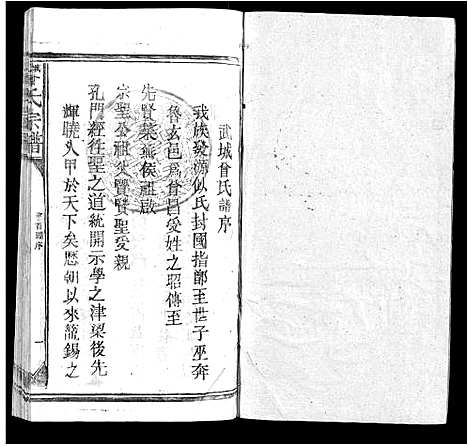 武城曾氏譜序
我族發源似氏封國指鄫至世子巫奔
魯去邑為曾因受姓之昭傳至
先賢萊蕪侯祖啟
宗聖公祖父賢賢聖受親
孔門經往聖之道統開示學之津望後先
輝曉人甲於天下矣歷朝以來寵錫之
氏宗譜
卷首 譜序
一